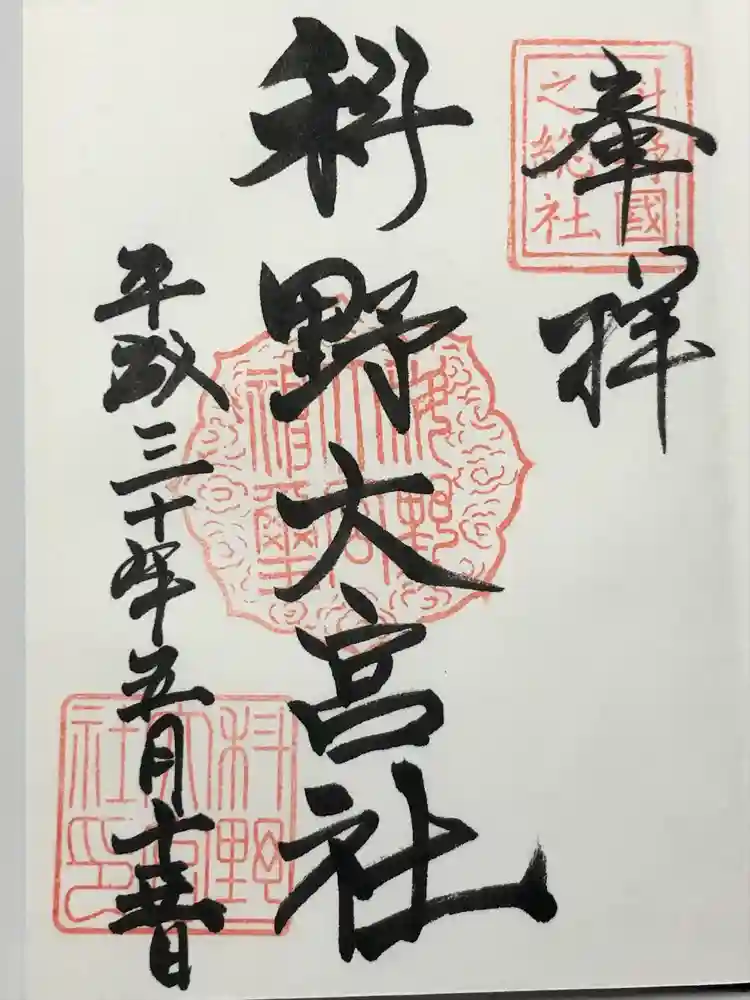 奉拝
科野國
之総社
科野大宮社
科野
大宮
神璽
平成三十年五月
科野
大宮
社印